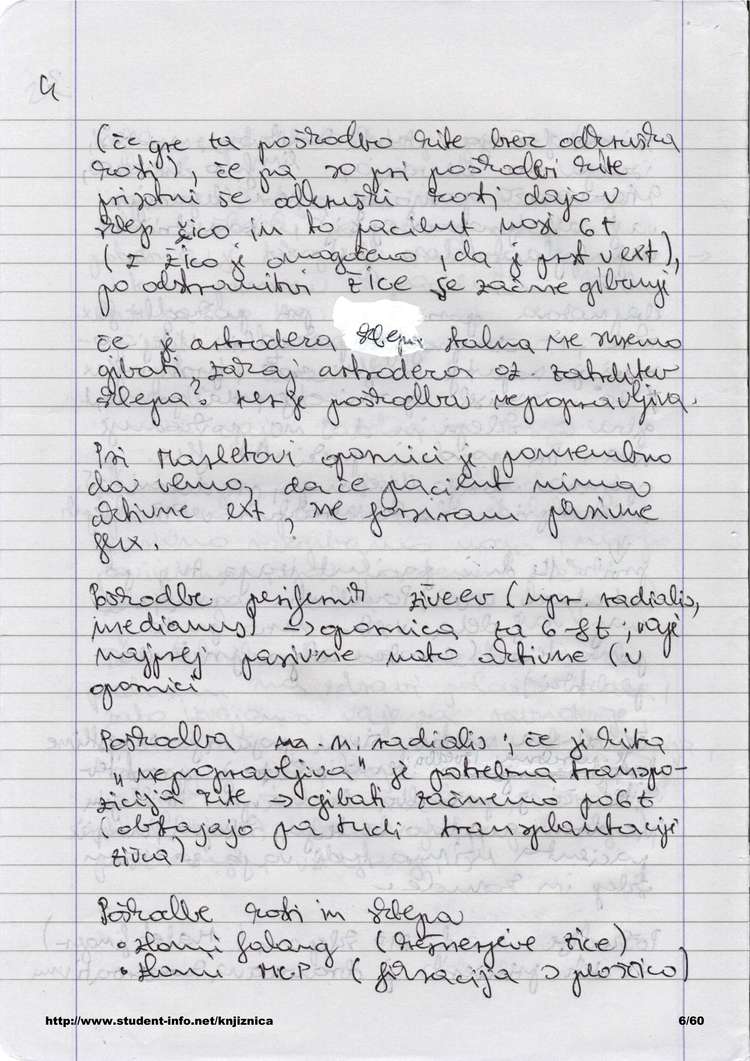 4
(če gre za poškodbo kite brez odkruška
kosti), če pa so pri poškodbi kite
prisotni še odkruški kosti dajo v
sklep žico in to pacient nosi 6t
(z žico je omogočeno, da je prst v ext),
po odstranitvi žice se začne gibanje
če je artrodeza sklepa stalna ne smemo
gibati, zakaj artrodeza oz. zatrditev
sklepa? ker je poškodba nepopravljiva.
Pri opornici je pomembno
da vemo, da če pacient nima
aktivne ext, ne forsiram pasivne
flex.
Poškodbe perifernih živcev (npr. radialis,
medianus) → opornica za 6-8t; vaje
najprej pasivne nato aktivne (v
opornici
Poškodba na n. radialis; če je kita
"nepopravljiva" je potrebna transpo-
zicija kite → gibati začnemo po 6t
(obstajajo pa tudi transplantacije
živca)
Poškodbe kosti in sklepa
• zlomi falang (kirschnerjeve žice)
• zlomi MCP (fiksacija s ploščico)
http://www.student-info.net/knjiznica
6/60